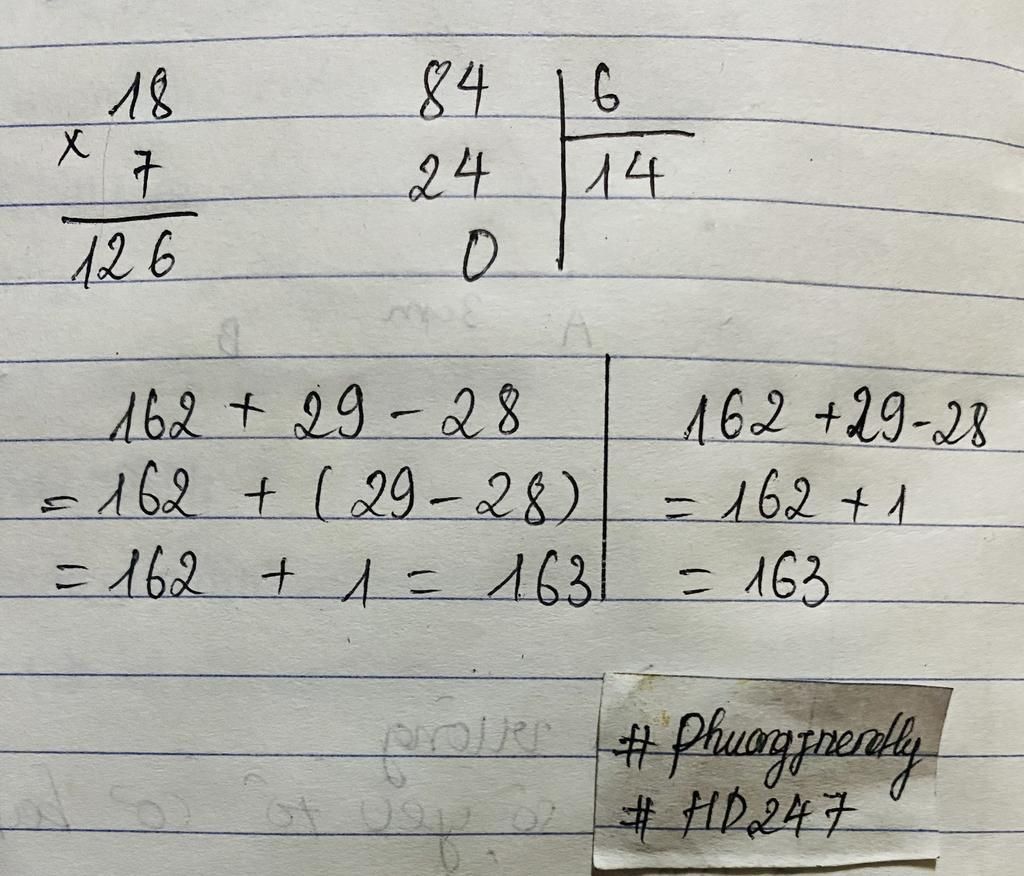 18
x
7
126
84 6
24 14
0
162 + 29 - 28
= 162 + (29 - 28)
= 162 + 1 = 163
162 + 29 - 28
= 162 + 1
= 163
# Phuongfriendly
# HD247